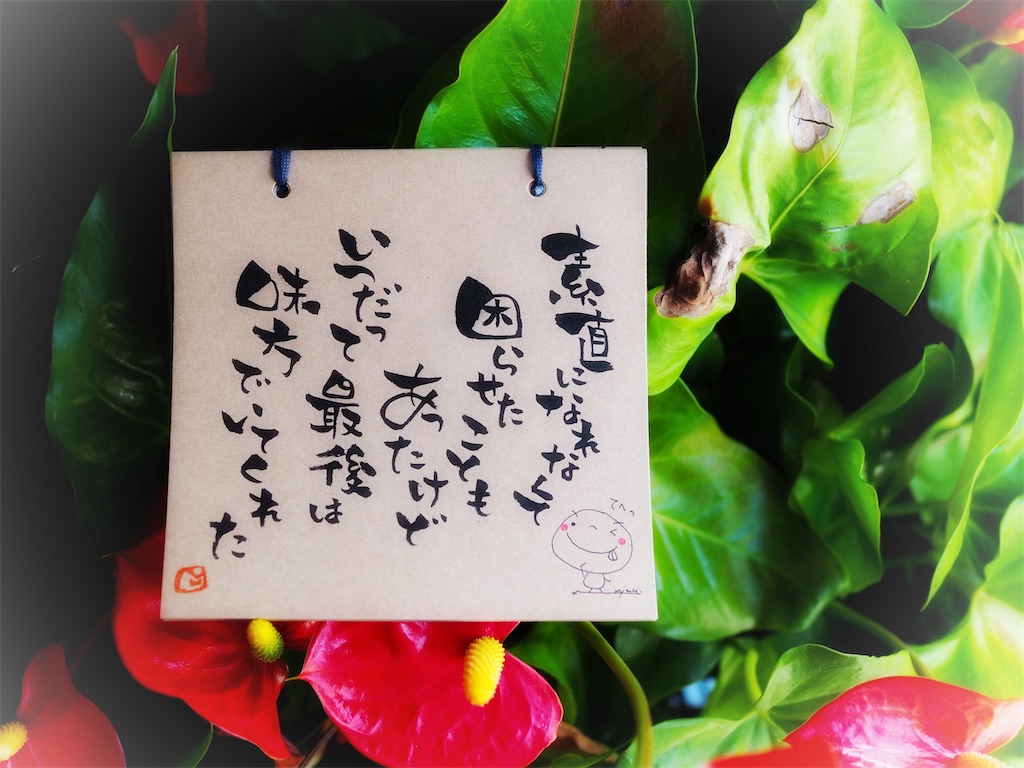 素直になれなくて
困らせたことも
あったけど
いつだって最後は
味方でいてくれた
てへっ